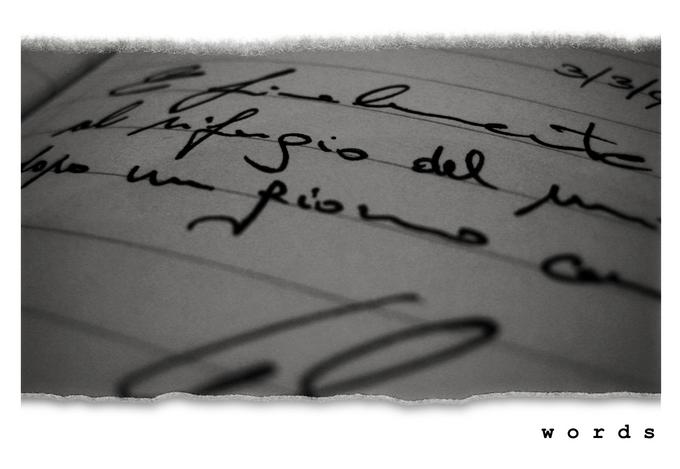 3/3/9
E finalmente
al rifugio del
dopo un giorno
words